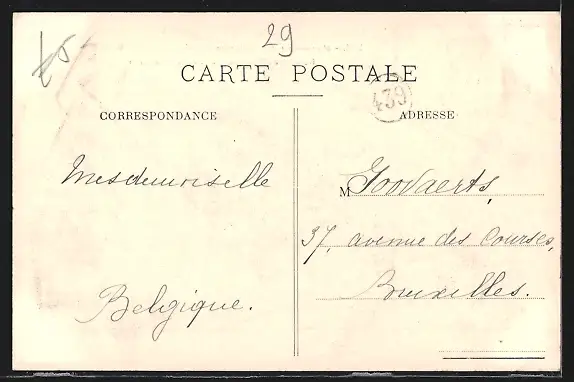 29
CARTE POSTALE
439
CORRESPONDANCE
ADRESSE
Mesdemoiselle
M Goovaerts,
37, avenue des Courses,
Belgique.
Bruxelles.